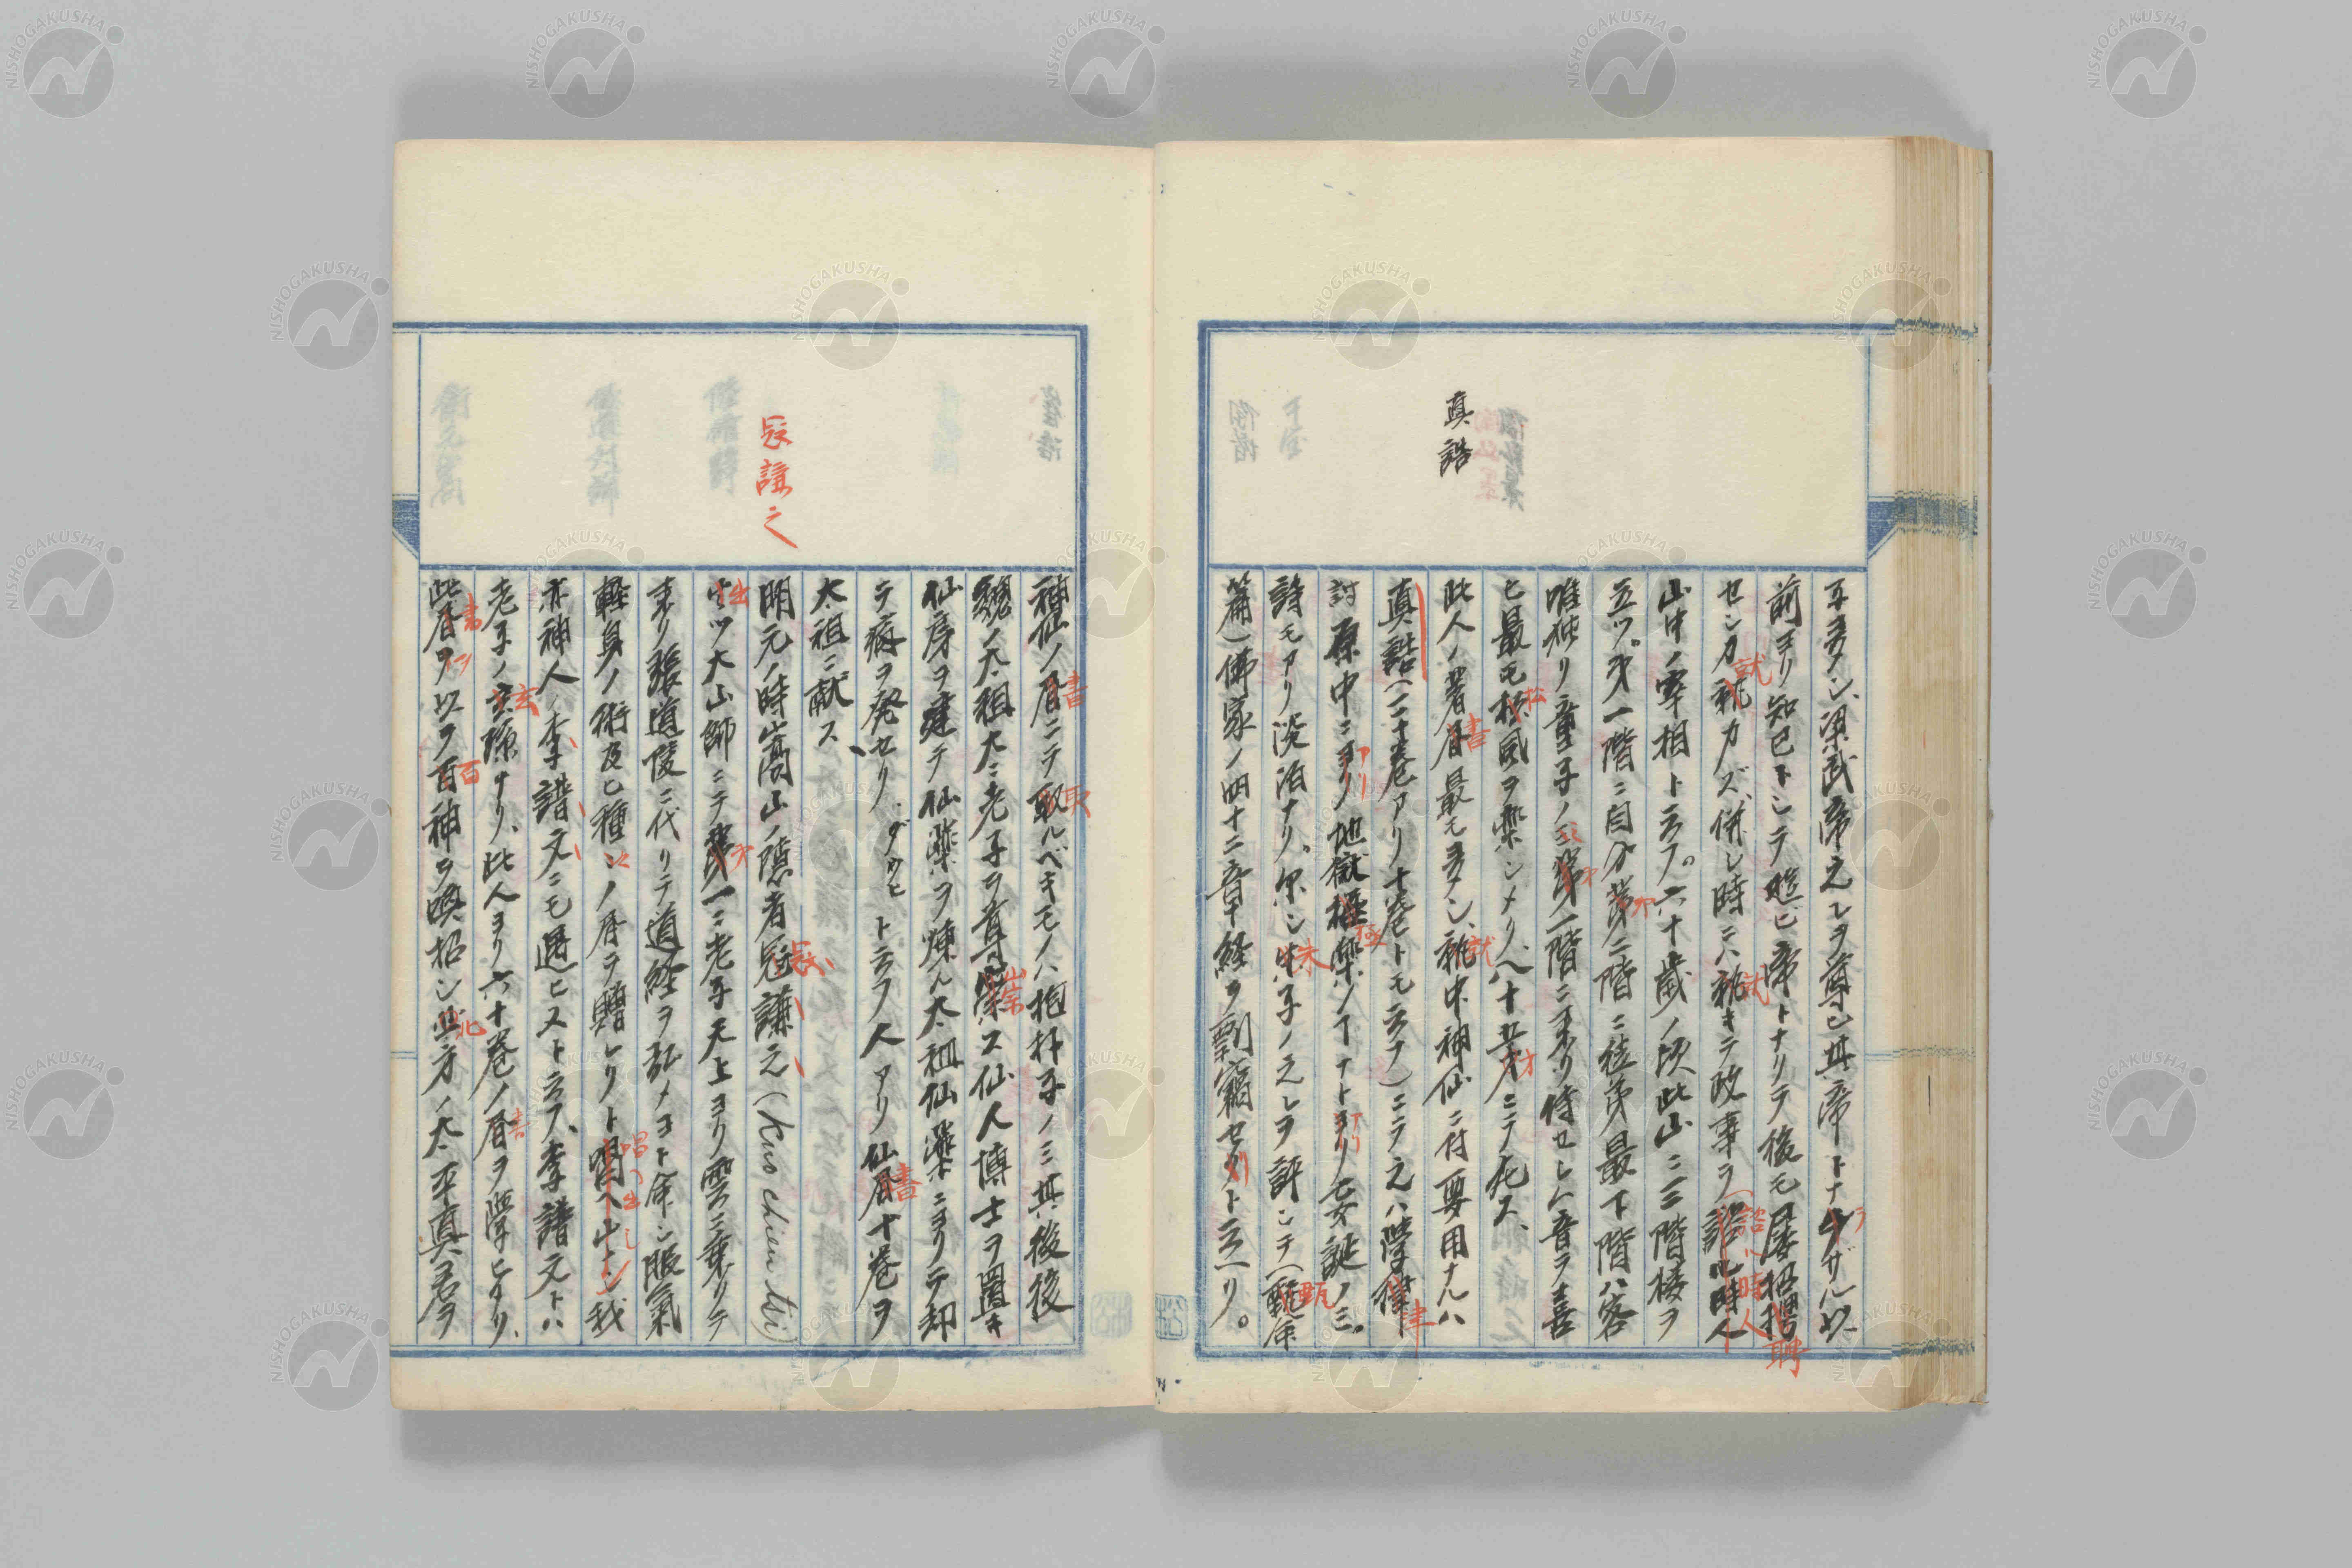 真誥
子多シ、梁武帝之レヲ尊ヒ其帝トナラザル以
前ヨリ知己トシテ遊ビ帝トナリテ後モ屡招聘
センカ就カズ、併し時ニハ就キテ政事ヲ
山中ノ宰相ト云フ。六十歳ノ頃此山ニ三階楼ヲ
立ツ。第一階ニ自分第二階ニ徒弟最下階ハ客
唯独リ童子ノミ第一階ニ来リ侍セしム音ヲ喜
ヒ最モ松風ヲ楽シメリ、八十五才ニテ死ス、
此人ノ著書最モ多シ、就中神仙ニ付要用ナルハ
真誥(二十巻アリ十巻トモ云フ)ニテ之ハ
討 中ニアリ地獄極楽ノ アリ妄誕ノミ。
詩モアリ淡泊ナリ。尔シ朱子ノ之レヲ評シテ(甄命
篇)佛家ノ四十二章経ヲ剽竊セリト云ヘリ。
寇謙之
神仙ノ書ニテ取ルベキモノハ抱朴子ノミ其後後
魏ノ太祖大ニ老子ヲ尊崇ス仙人博士ヲ置キ
仙房ヲ建テ仙薬ヲ煉ル太祖仙薬ニヨリテ却
テ病ヲ発セリ、 ト云フ人アリ仙書十巻ヲ
太祖ニ献ス、
明元ノ時嵩山ノ隠者寇謙之(Kuo chien tsi)
出ツ大山師ニテ第一ニ老子天上ヨリ雲ニ乗リテ
来リ張道陵ニ代リテ道経ヲ弘メヨト命シ服氣
軽身ノ術及ヒ種々ノ書ヲ贈レリト唱ヘ出シ我
亦神人、李譜文ニモ遇ヒスト云フ、李譜文トハ
老子ノ玄孫ナリ、此人ヨリ六十巻ノ書ヲ學ヒタリ、
此書ヲ以ヲ百神ヲ喚招シ北方ノ太平真君ヲ